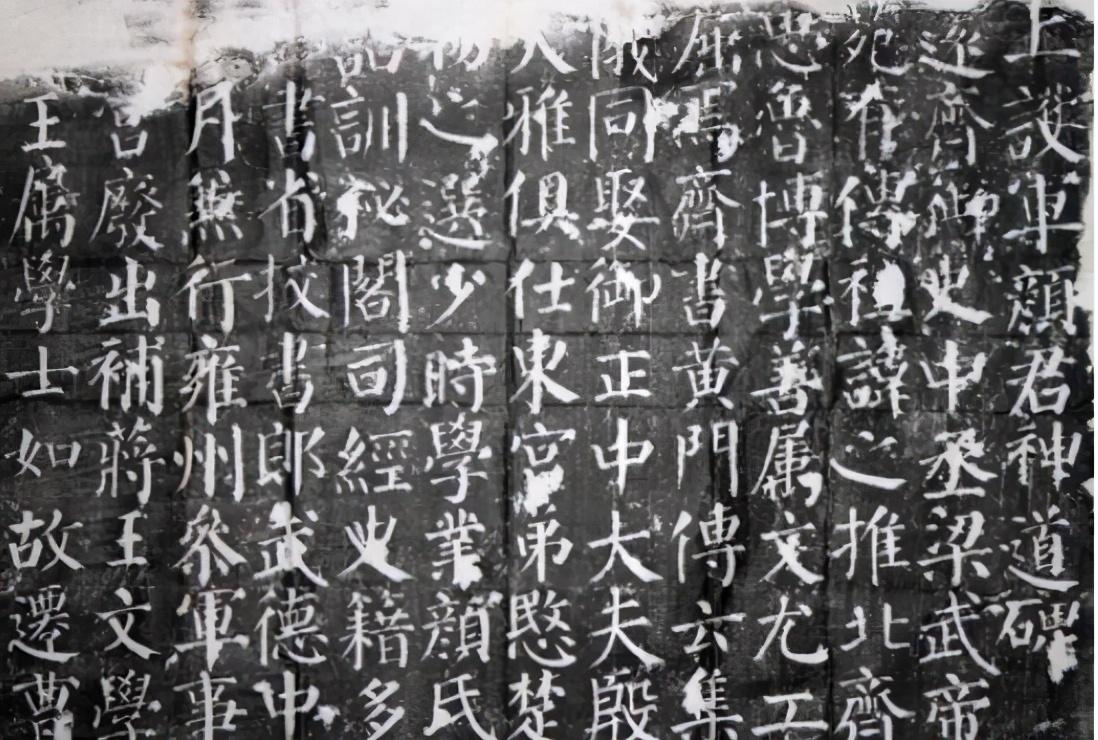 上護軍顏君神道碑
齊御史中丞梁武帝
苑有傳祖諱之推北齊
思魯博學善属文尤工
屈焉齊書黃門傳云集
儀同娶御正中大夫殷
大雅俱仕東宮弟愍楚
初之選少時學業顏氏
詁訓祕閣司經史籍多
書省挍書郎武德中
月無行雍州叅軍事
宮廢出補蔣王文學
王属學士如故遷曹